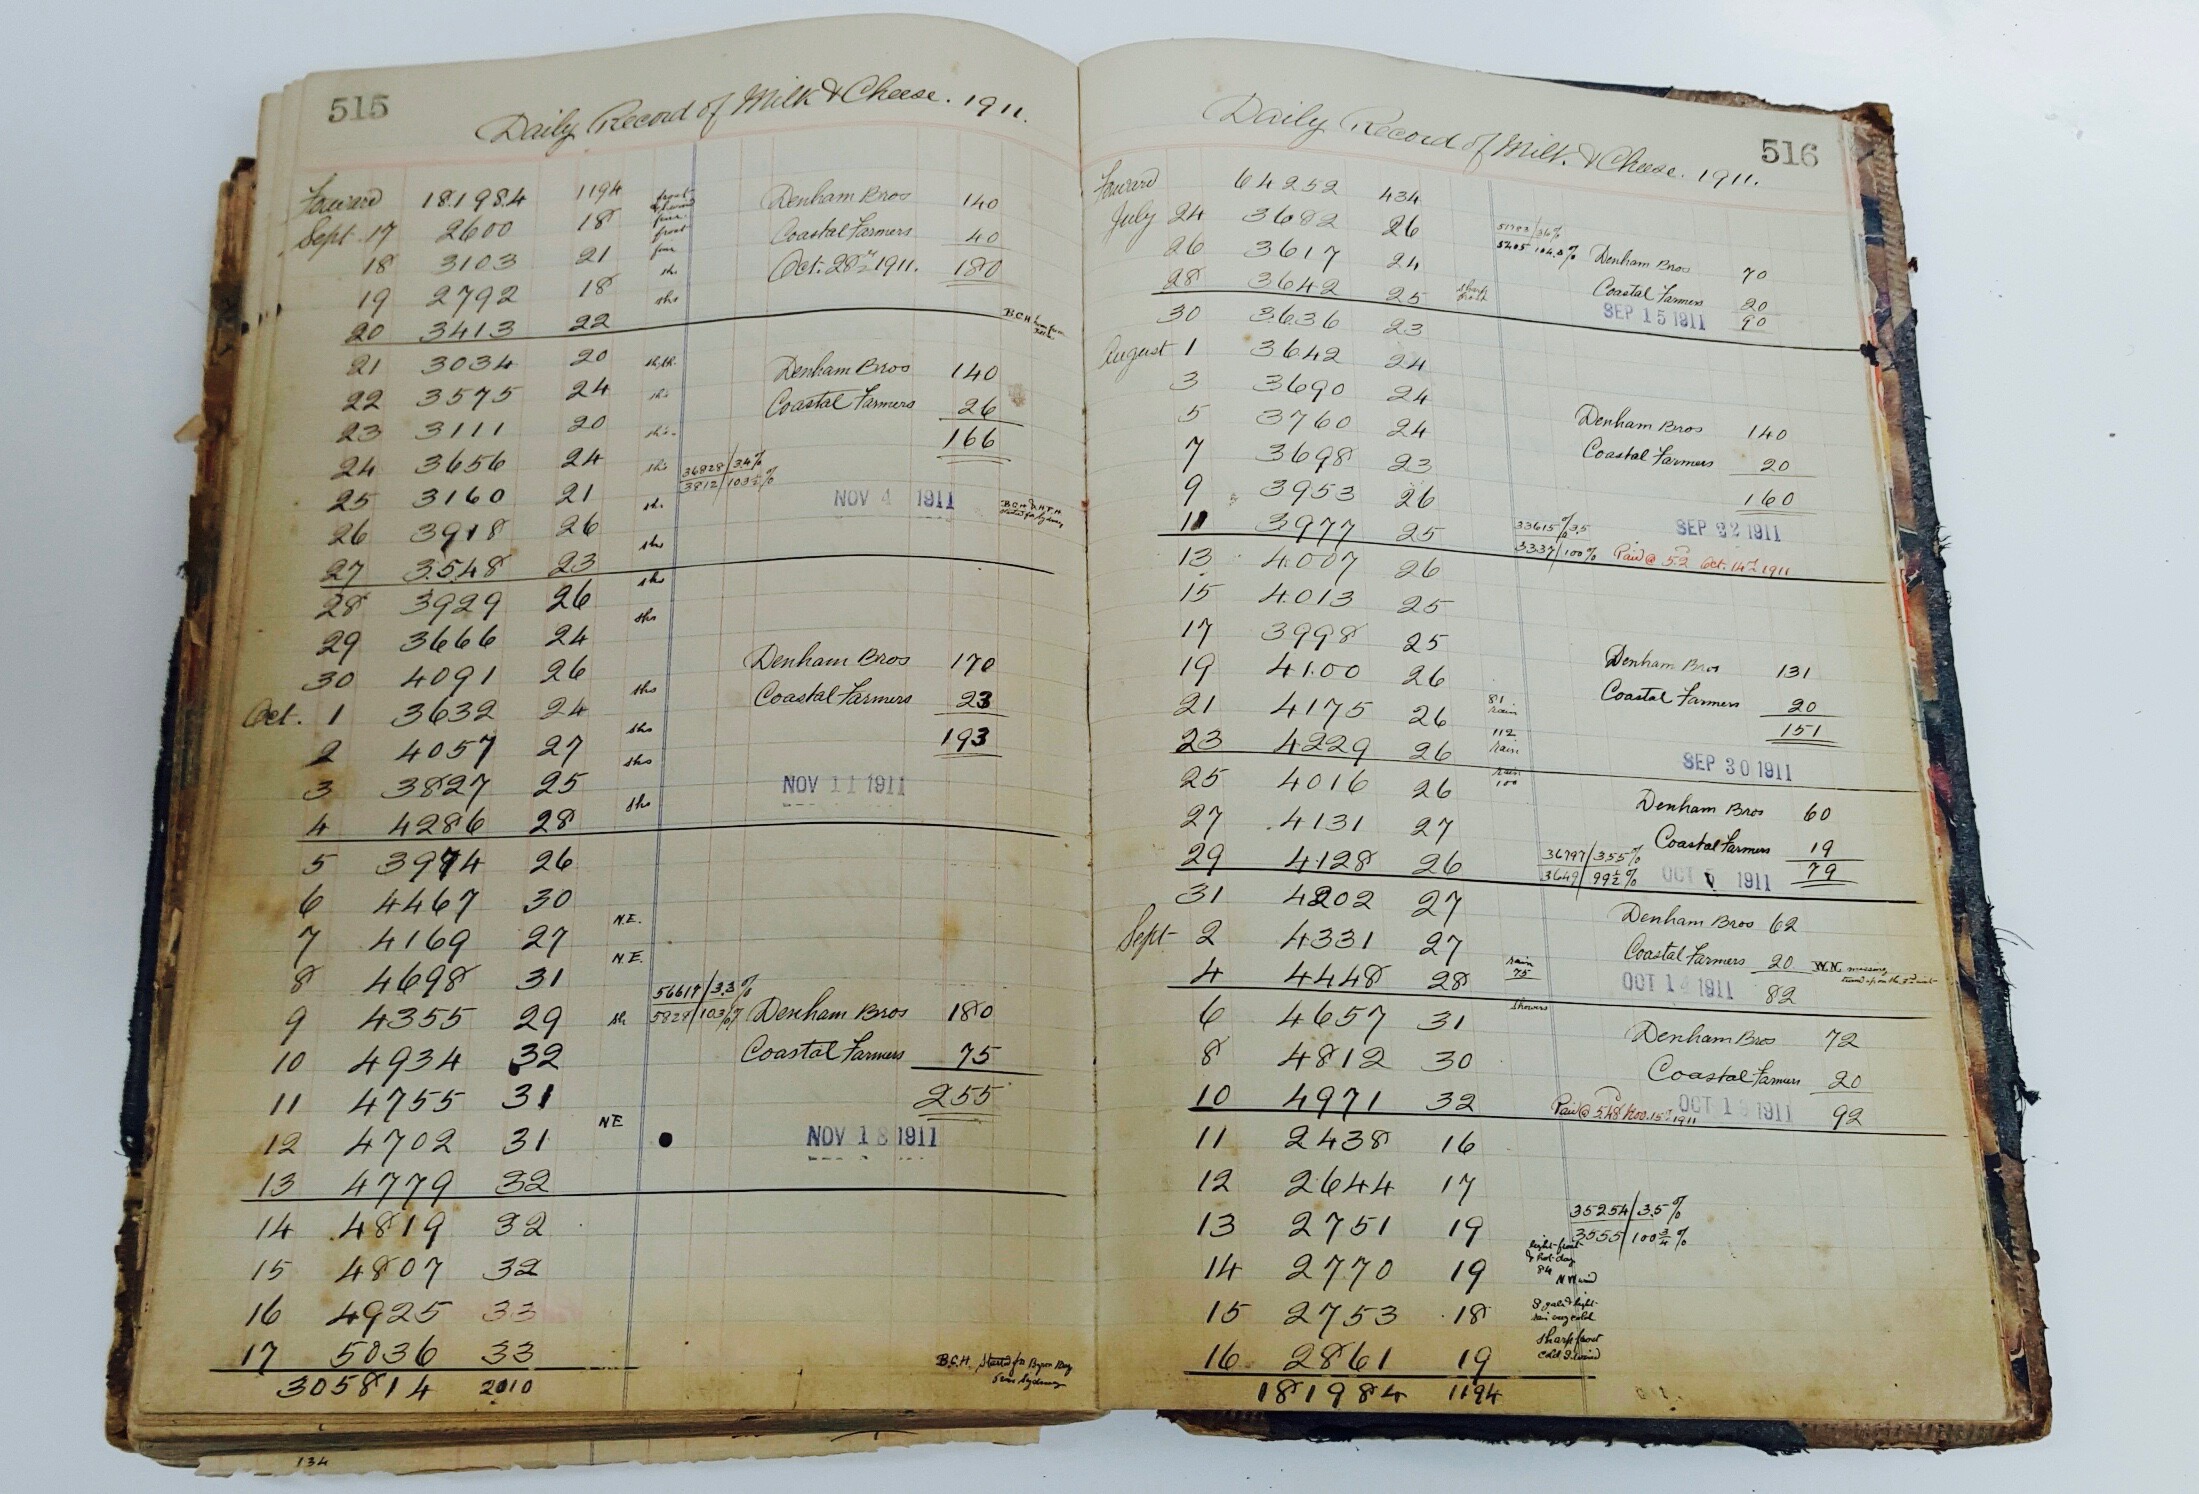 515
Daily Record of Milk & Cheese. 1911.
Forward 181984 1194 Denham Bros 140
Sept. 17 2600 18 fine frost Coastal Farmers 40
18 3103 21 fine Oct. 28th 1911. 180
19 2792 18 sh.
20 3413 22 shs
B.C.H.
21 3034 20 Denham Bros 140
22 3575 24 shs Coastal Farmers 26
23 3111 20 shs. 166
24 3656 24 shs 36828/3.4%
25 3160 21 sh. 3812/103½% NOV 4 1911
26 3918 26 shs
27 3548 23 shs
28 3929 26 shs
29 3666 24
30 4091 26 shs Denham Bros 170
Oct. 1 3632 24 shs Coastal Farmers 23
2 4057 27 shs 193
3 3827 25 shs NOV 11 1911
4 4286 28
5 3974 26
6 4467 30 N.E.
7 4169 27 N.E.
8 4698 31 56617/3.3%
9 4355 29 sh 5828/103% Denham Bros 180
10 4934 32 Coastal Farmers 75
11 4755 31 255
12 4702 31 NE NOV 18 1911
13 4779 32
14 4819 32
15 4807 32
16 4925 33
17 5036 33 B.C.H. Started for Byron Bay
305814 2010
134
516
Daily Record of Milk & Cheese. 1911.
Forward 64252 434
July 24 3682 26 51783/3.6%
26 3617 24 Denham Bros 70
28 3642 25 sharp frost Coastal Farmers 20
30 3636 23 SEP 15 1911 90
August 1 3642 24
3 3690 24
5 3760 24 Denham Bros 140
7 3698 23 Coastal Farmers 20
9 3953 26 160
11 3977 25 33615/3.5% SEP 22 1911
3337/100% Paid @ 5.2 Oct. 14th 1911
13 4007 26
15 4013 25
17 3998 25
19 4100 26 Denham Bros 131
21 4175 26 81 rain Coastal Farmers 20
23 4229 26 112 rain 151
25 4016 26 rain 100 SEP 30 1911
27 4131 27 Denham Bros 60
29 4128 26 36797/3.55% Coastal Farmers 19
3649/99½% OCT 1911 79
31 4202 27 Denham Bros 62
Sept 2 4331 27 Coastal Farmers 20
4 4448 28 rain 75 OCT 14 1911 82
6 4657 31 showers Denham Bros 72
8 4812 30 Coastal Farmers 20
10 4971 32 Paid @ 5.48 Nov. 15th 1911 OCT 1911 92
11 2438 16
12 2644 17 35254/3.5%
13 2751 19 3555/100¾%
14 2770 19 light frost & hot day 84 N W wind
15 2753 18
16 2861 19 sharp frost
181984 1194